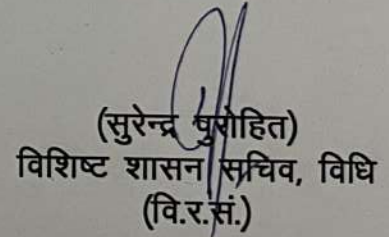 (सुरेन्द्र पुरोहित)
विशिष्ट शासन सचिव, विधि
(वि.र.सं.)